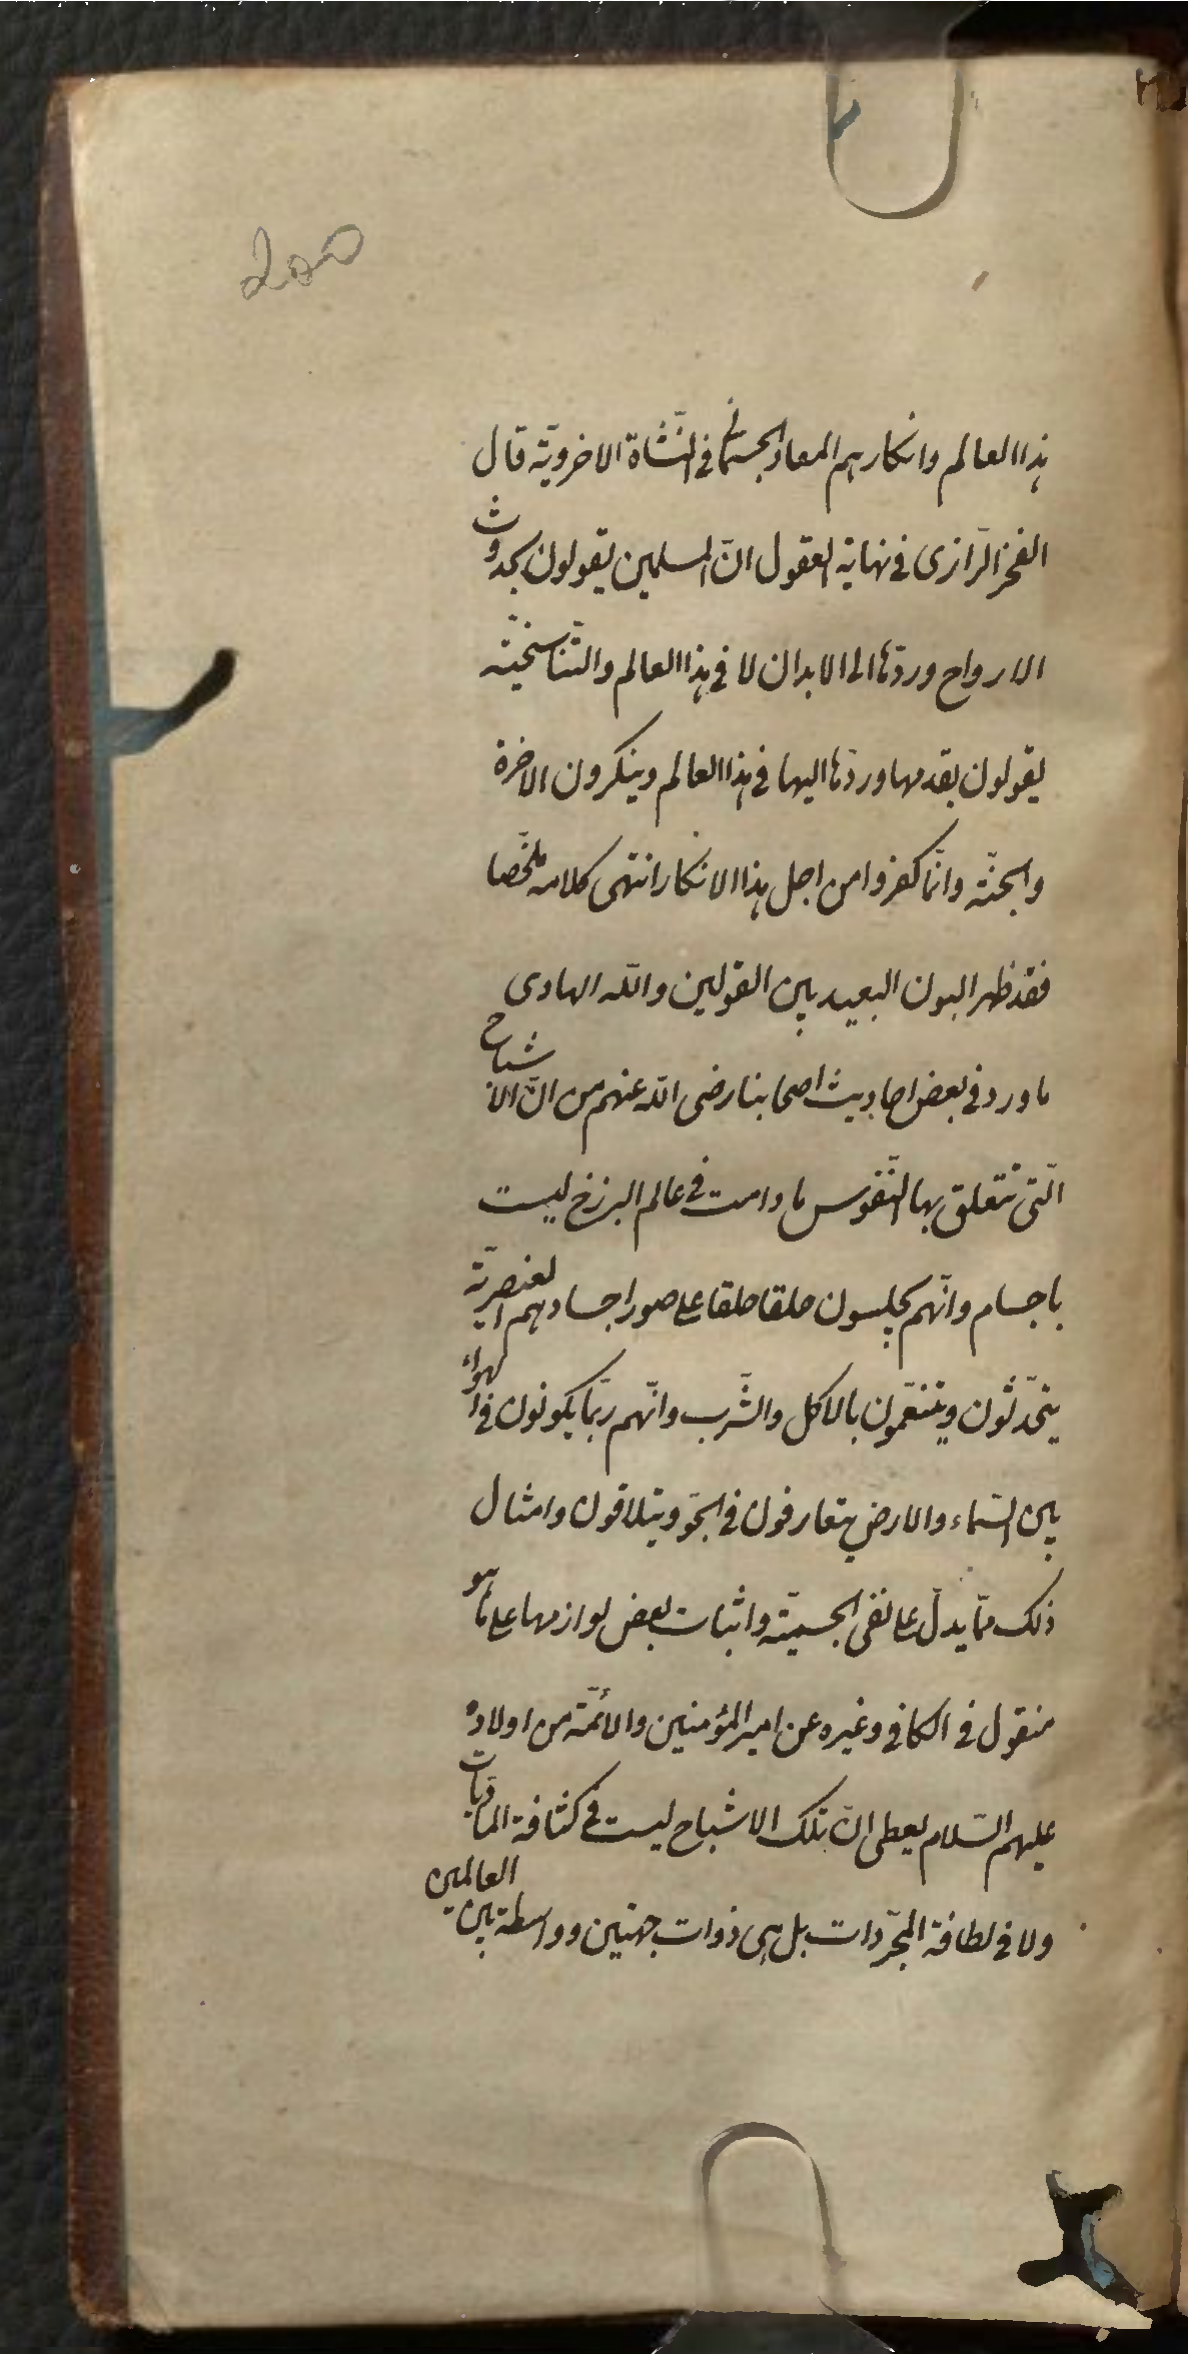 هذا العالم وانكارهم المعاد الجسمانى فى النّشاة الاخرويّة قال
الفخر الرّازى فى نهاية العقول انّ المسلمين يقولون بحدوث
الارواح وردّها الى الابدان لا فى هذا العالم والتّناسخيّة
يقولون بقدمها وردّها اليها فى هذا العالم وينكرون الاخرة
والجنّة وانّما كفروا من اجل هذا الانكار انتهى كلامه ملخّصا
فقد ظهر البون البعيد بين القولين واللّه الهادى
ما ورد فى بعض احاديث اصحابنا رضى اللّه عنهم من انّ الاشباح
الّتى تتعلق بها النّفوس ما دامت فى عالم البرزخ ليست
باجسام وانّهم يجلسون حلقا حلقا على صور اجسادهم العنصريّة
يتحدّثون ويتنعّمون بالاكل والشّرب وانّهم ربّما يكونون فى الهواء
بين السّماء والارض يتعارفون فى الجوّ ويتلاقون وامثال
ذلك ممّا يدلّ على نفى الجسميّة واثبات بعض لوازمها على ما هو
منقول فى الكافى وغيره عن امير المؤمنين والائمّة من اولاده
عليهم السّلام يعطى انّ تلك الاشباح ليست فى كثافة الماديّات
ولا فى لطافة المجرّدات بل هى ذوات جهتين وواسطة بين العالمين